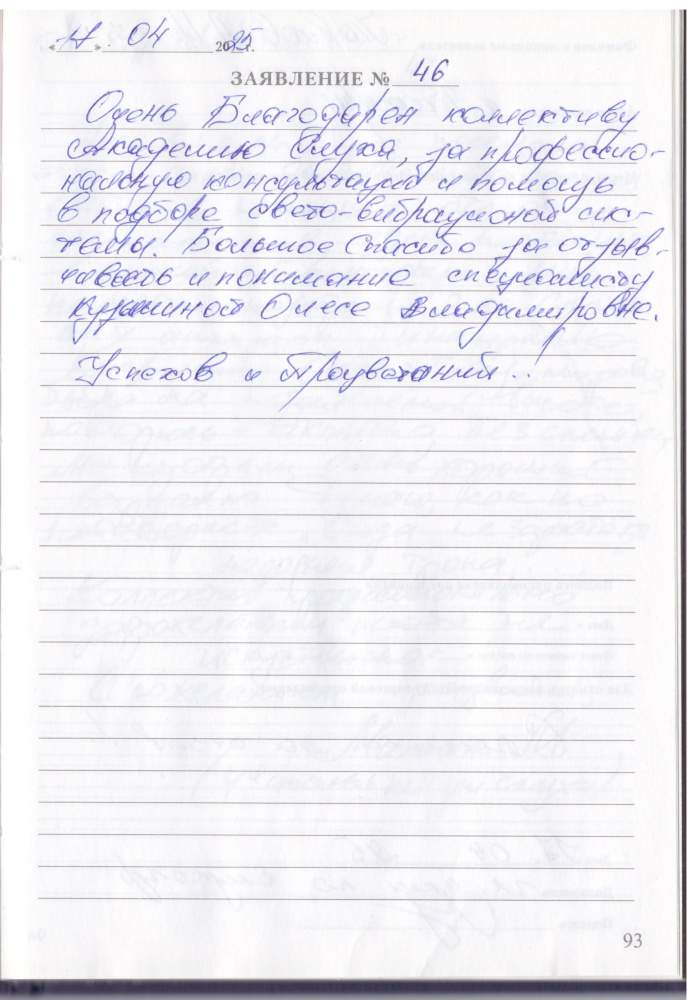 « 17 » 04 2025 г.
ЗАЯВЛЕНИЕ № 46
Очень Благодарен коллективу
Академию Слуха, за професси­о-
нальную консультацию и помощь
в подборе свето-вибрационой сис-
темы. Большое спасибо за отзыв-
чивость и понимание специалисту
Олесе Владимировне.
Успехов и Процветаний..!
93